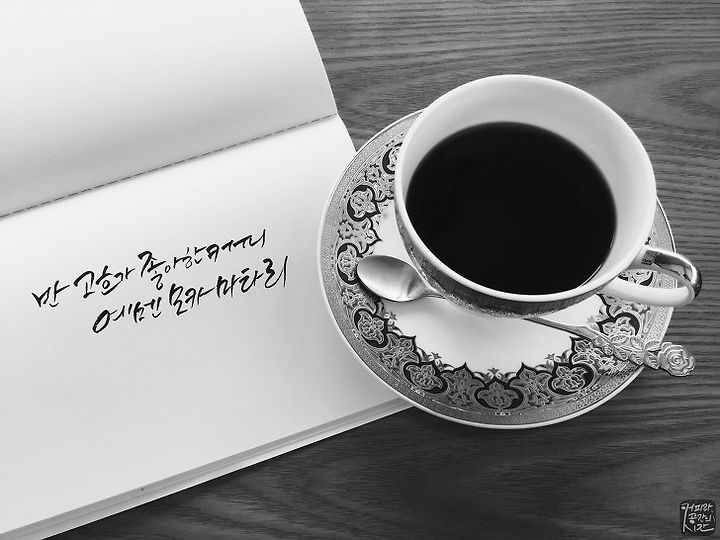 반 고흐가 좋아한 커피
예멘 모카 마타리
커피와
공간의
시간